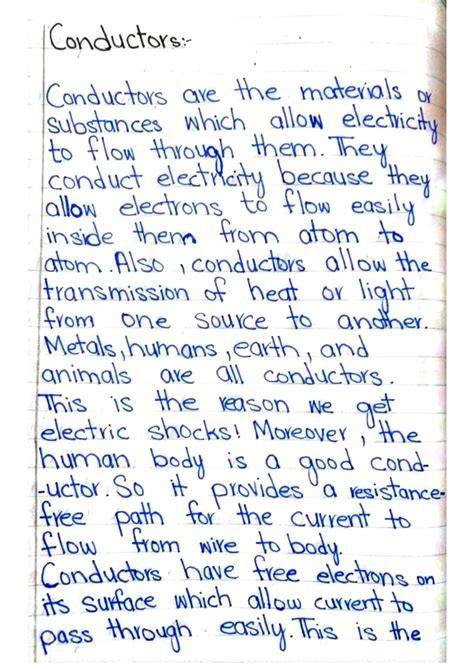 Conductors:-
Conductors are the materials or
substances which allow electricity
to flow through them. They
conduct electricity because they
allow electrons to flow easily
inside them from atom to
atom. Also, conductors allow the
transmission of heat or light
from one source to another.
Metals, humans, earth, and
animals are all conductors.
This is the reason we get
electric shocks! Moreover, the
human body is a good cond-
-uctor. So it provides a resistance-
free path for the current to
flow from wire to body.
Conductors have free electrons on
its surface which allow current to
pass through easily. This is the